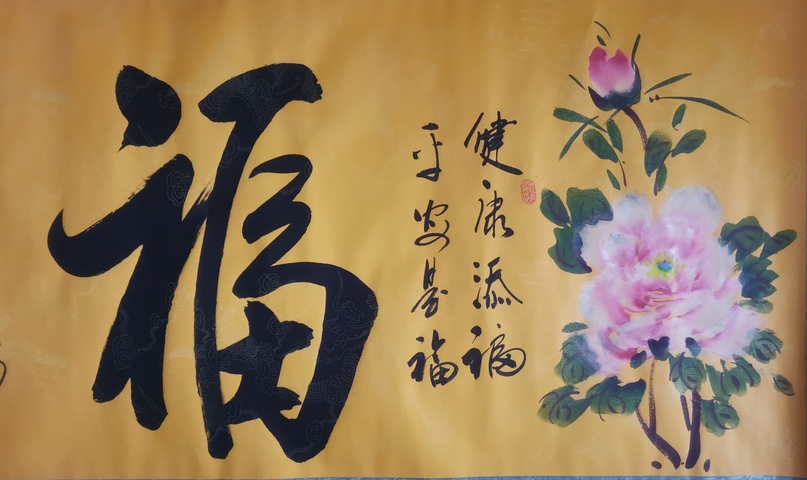 健康添福
平安是福
福